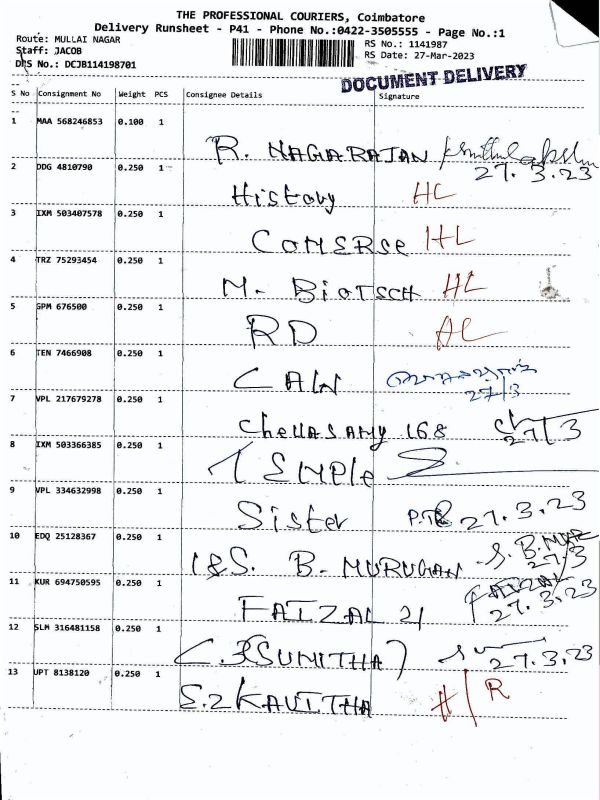 THE PROFESSIONAL COURIERS, Coimbatore
Delivery Runsheet - P41 - Phone No.:0422-3505555 - Page No.:1
Route: MULLAI NAGAR
Staff: JACOB
DRS No.: DCJB114198701
RS No.: 1141987
RS Date: 27-Mar-2023
DOCUMENT DELIVERY
S No Consignment No Weight PCS Consignee Details Signature
1 MAA 568246853 0.100 1
R. NAGARAJAN 27.3.23
2 DDG 4810790 0.250 1
History HL
3 IXM 503407578 0.250 1
COMERSE HL
4 TRZ 75293454 0.250 1
M. BIOTSCH HL
5 GPM 676500 0.250 1
RD
6 TEN 7466908 0.250 1
CAN 27/3
7 VPL 217679278 0.250 1
ChellASAMY 168 27/3
8 IXM 503366385 0.250 1
9 VPL 334632998 0.250 1
Sister 27.3.23
10 EDQ 25128367 0.250 1
I&S. B. MURUGAN S. B. 27/3
11 KUR 694750595 0.250 1
FAIZAL 21 FAIZAL 27.3.23
12 SLM 316481158 0.250 1
(SUNITHA) 27.3.23
13 UPT 8138120 0.250 1
S.2 KAVITHA H/R